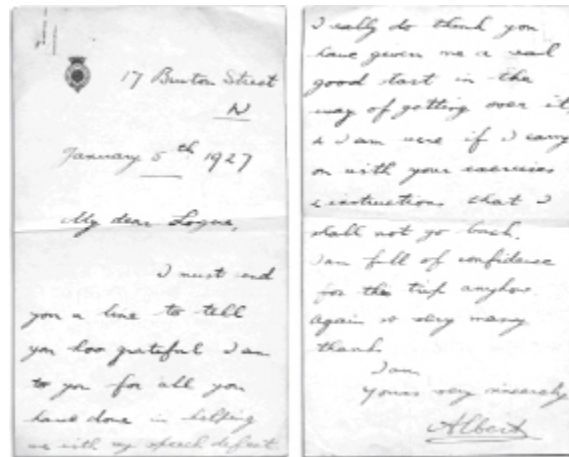 17 Bruton Street
W
January 5th 1927
My dear Logue,
I must send
you a line to tell
you how grateful I am
to you for all you
have done in helping
me with my speech defect.
I really do think you
have given me a real
good start in the
way of getting over it,
& I am sure if I carry
on with your exercises
& instructions that I
shall not go back.
I am full of confidence
for this trip anyhow.
Again so very many
thanks.
I am
Yours very sincerely
Albert